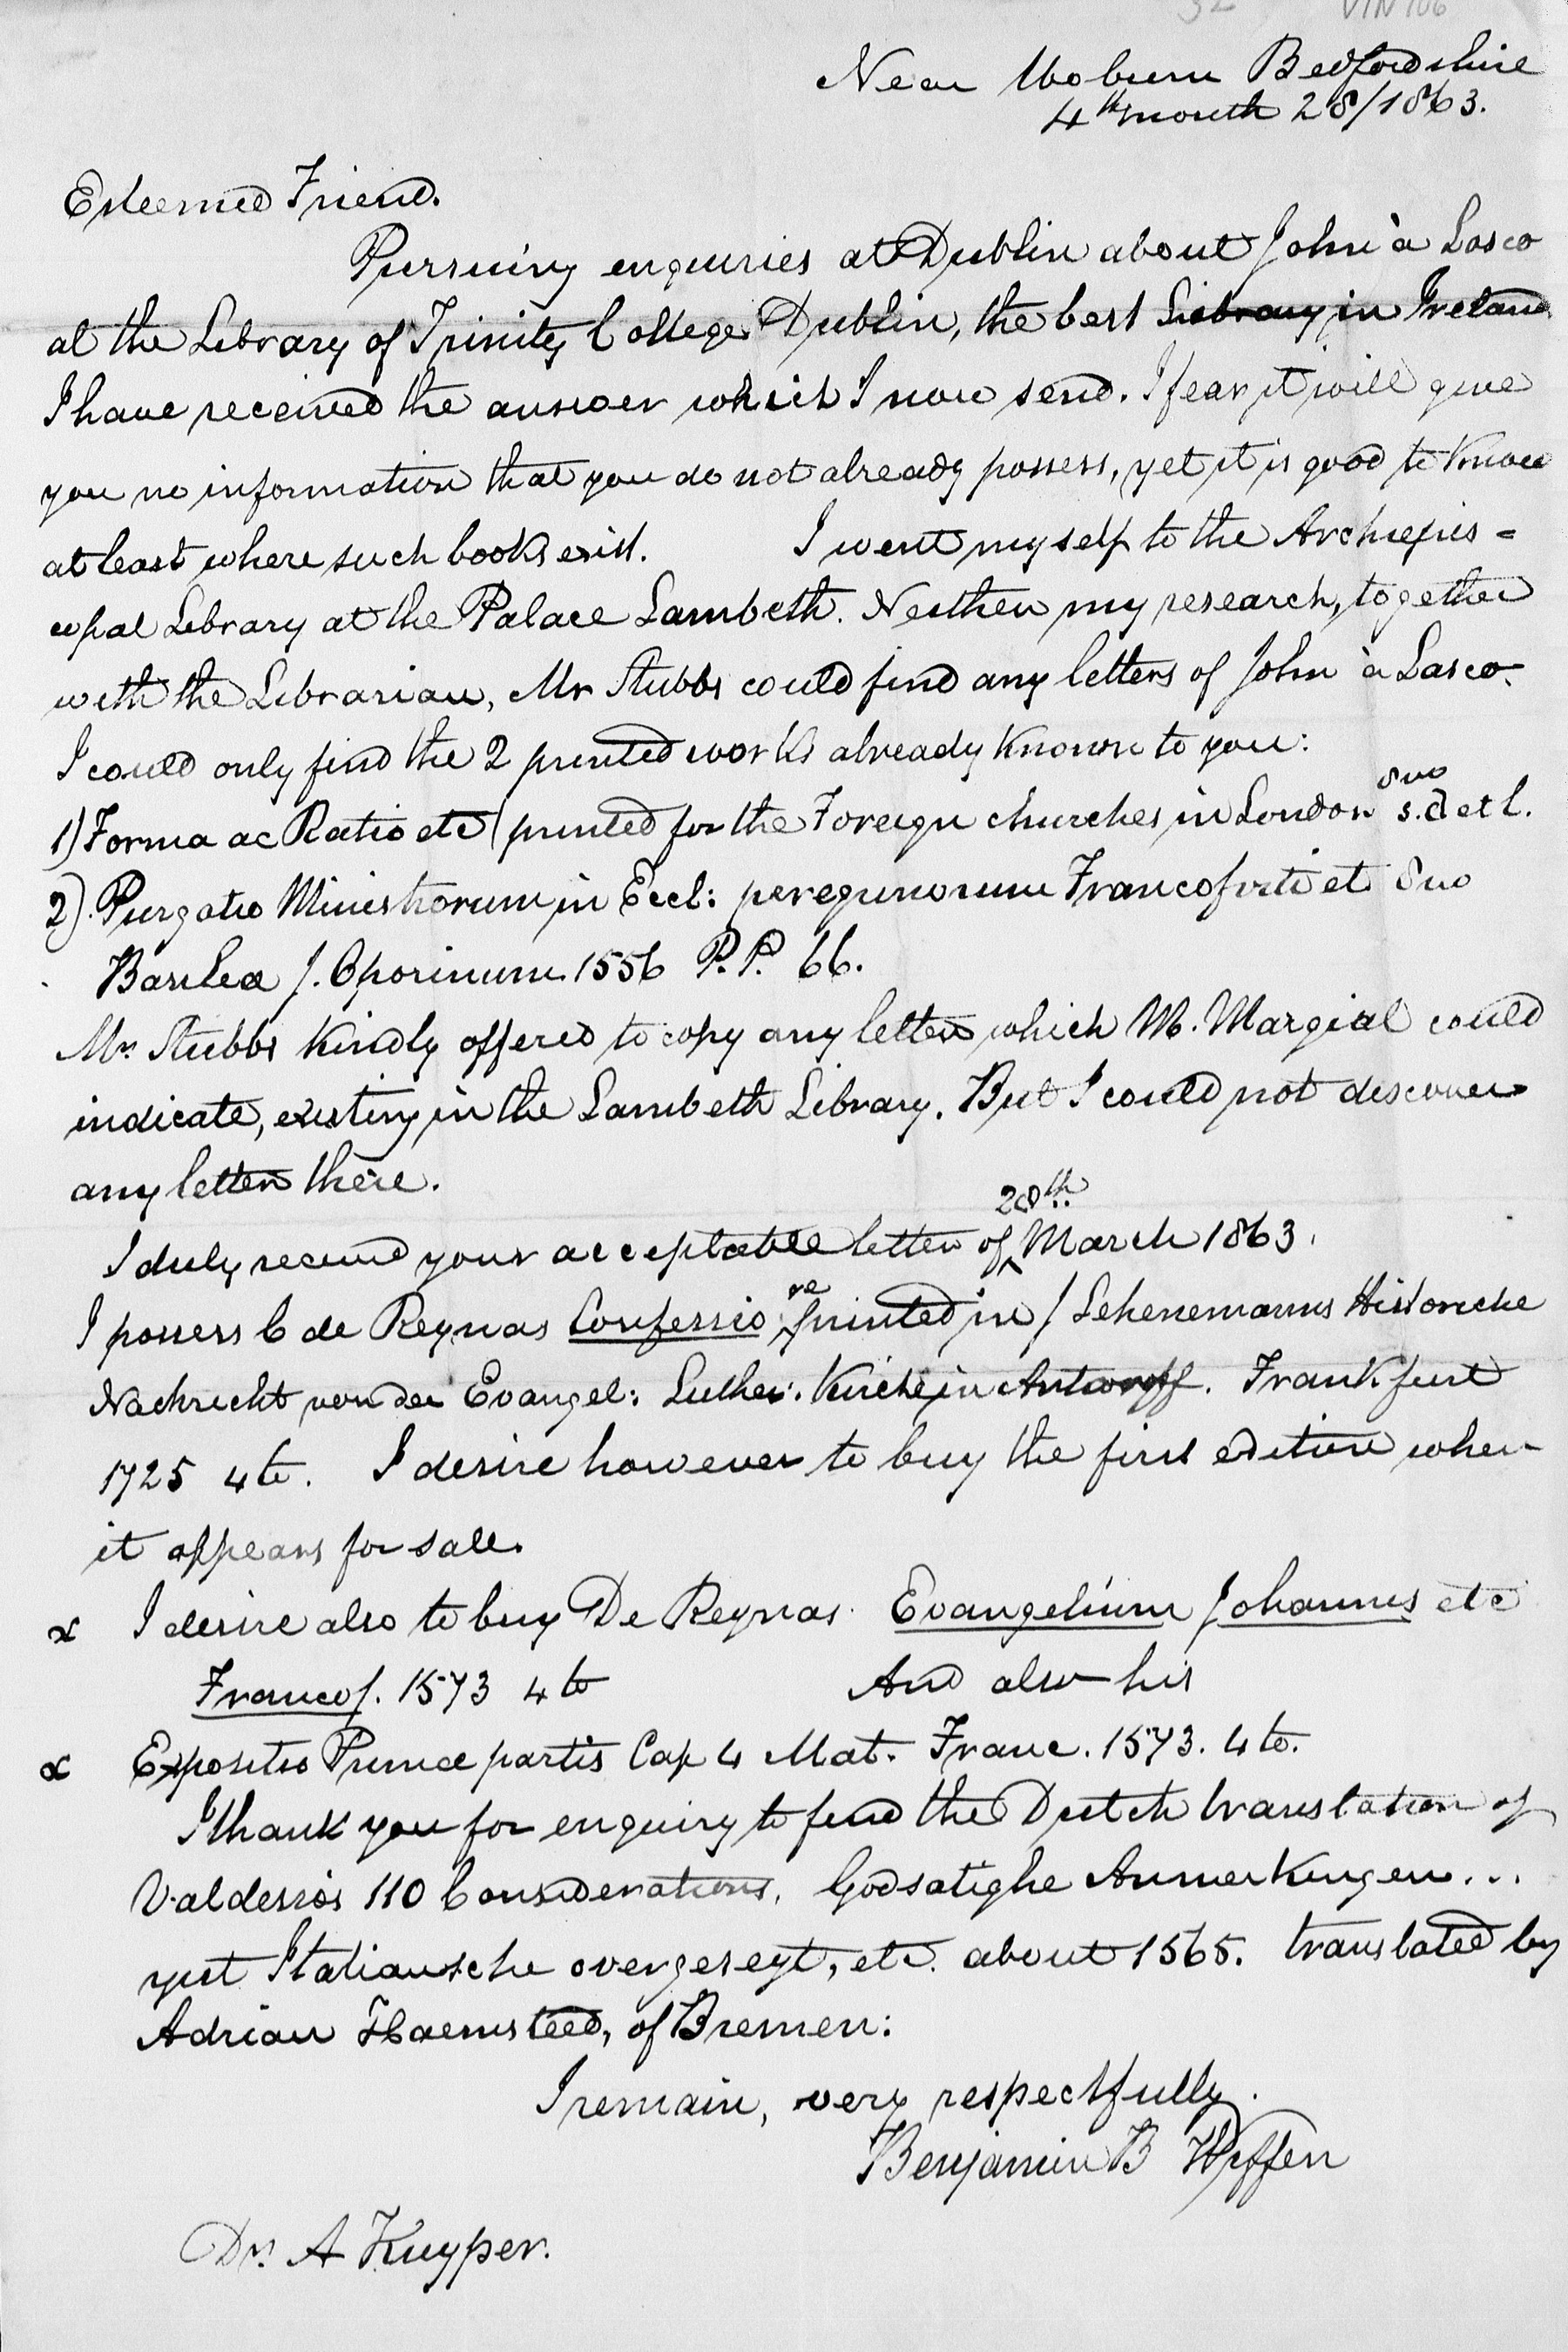 Near Woburn Bedfordshire
4th month 28/1863.
Esteemed Friend.
Pursuing enquiries at Dublin about John à Lasco
at the Library of Trinity College Dublin, the best Library in Ireland
I have received the answer which I now send. I fear it will give
you no information that you do not already possess, yet it is good to know
at least where such books exist. I went myself to the Archiepis=
copal Library at the Palace Lambeth. Neither my research, together
with the Librarian, Mr Stubbs could find any letters of John à Lasco.
I could only find the 2 printed works already known to you:
8vo
1) Forma ac Ratio etc (printed for the Foreign churches in London s.d et l.
2). Purgatio Ministrorum in Eccl: peregrinorum Francoforti et 8vo
Basilea J. Oporinum 1556 P.P. 66.
Mr Stubbs kindly offered to copy any letters which M. Margial could
indicate, existing in the Lambeth Library. But I could not discover
any letters there.
28th
I duly received your acceptable letter of March 1863.
re
I possess C de Reynas Confessio printed in J Lehenemanns Historiche
Nachricht von der Evangel: Luther: Kirche in Antorff. Frankfurt
1725 4to. I desire however to buy the first edition when
it appears for sale.
I desire also to buy De Reynas Evangelium Johannis etc
Francof. 1573 4to And also his
Expositio Primae partis Cap 4 Mat. Franc. 1573. 4to.
I thank you for enquiry to find the Dutch translation of
Valdessos 110 Considerations. Godsalighe Anmerkingen...
yut Italiansche overgeseyt, etc. about 1565. translated by
Adrian Haemsteed, of Bremen:
I remain, very respectfully.
Benjamin B Wiffen
Dr. A Kuyper.